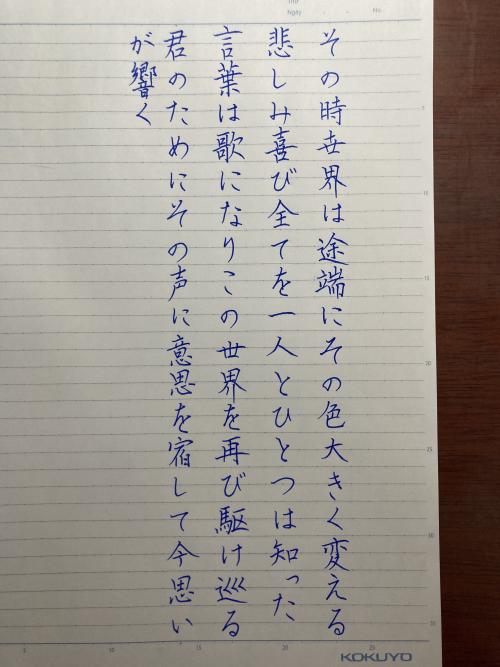 その時世界は途端にその色大きく変える
悲しみ喜び全てを一人とひとつは知った
言葉は歌になりこの世界を再び駆け巡る
君のためにその声に意思を宿して今思い
が響く
Ngày
No.
5
10
15
20
25
30
35
5
10
15
20
25
KOKUYO